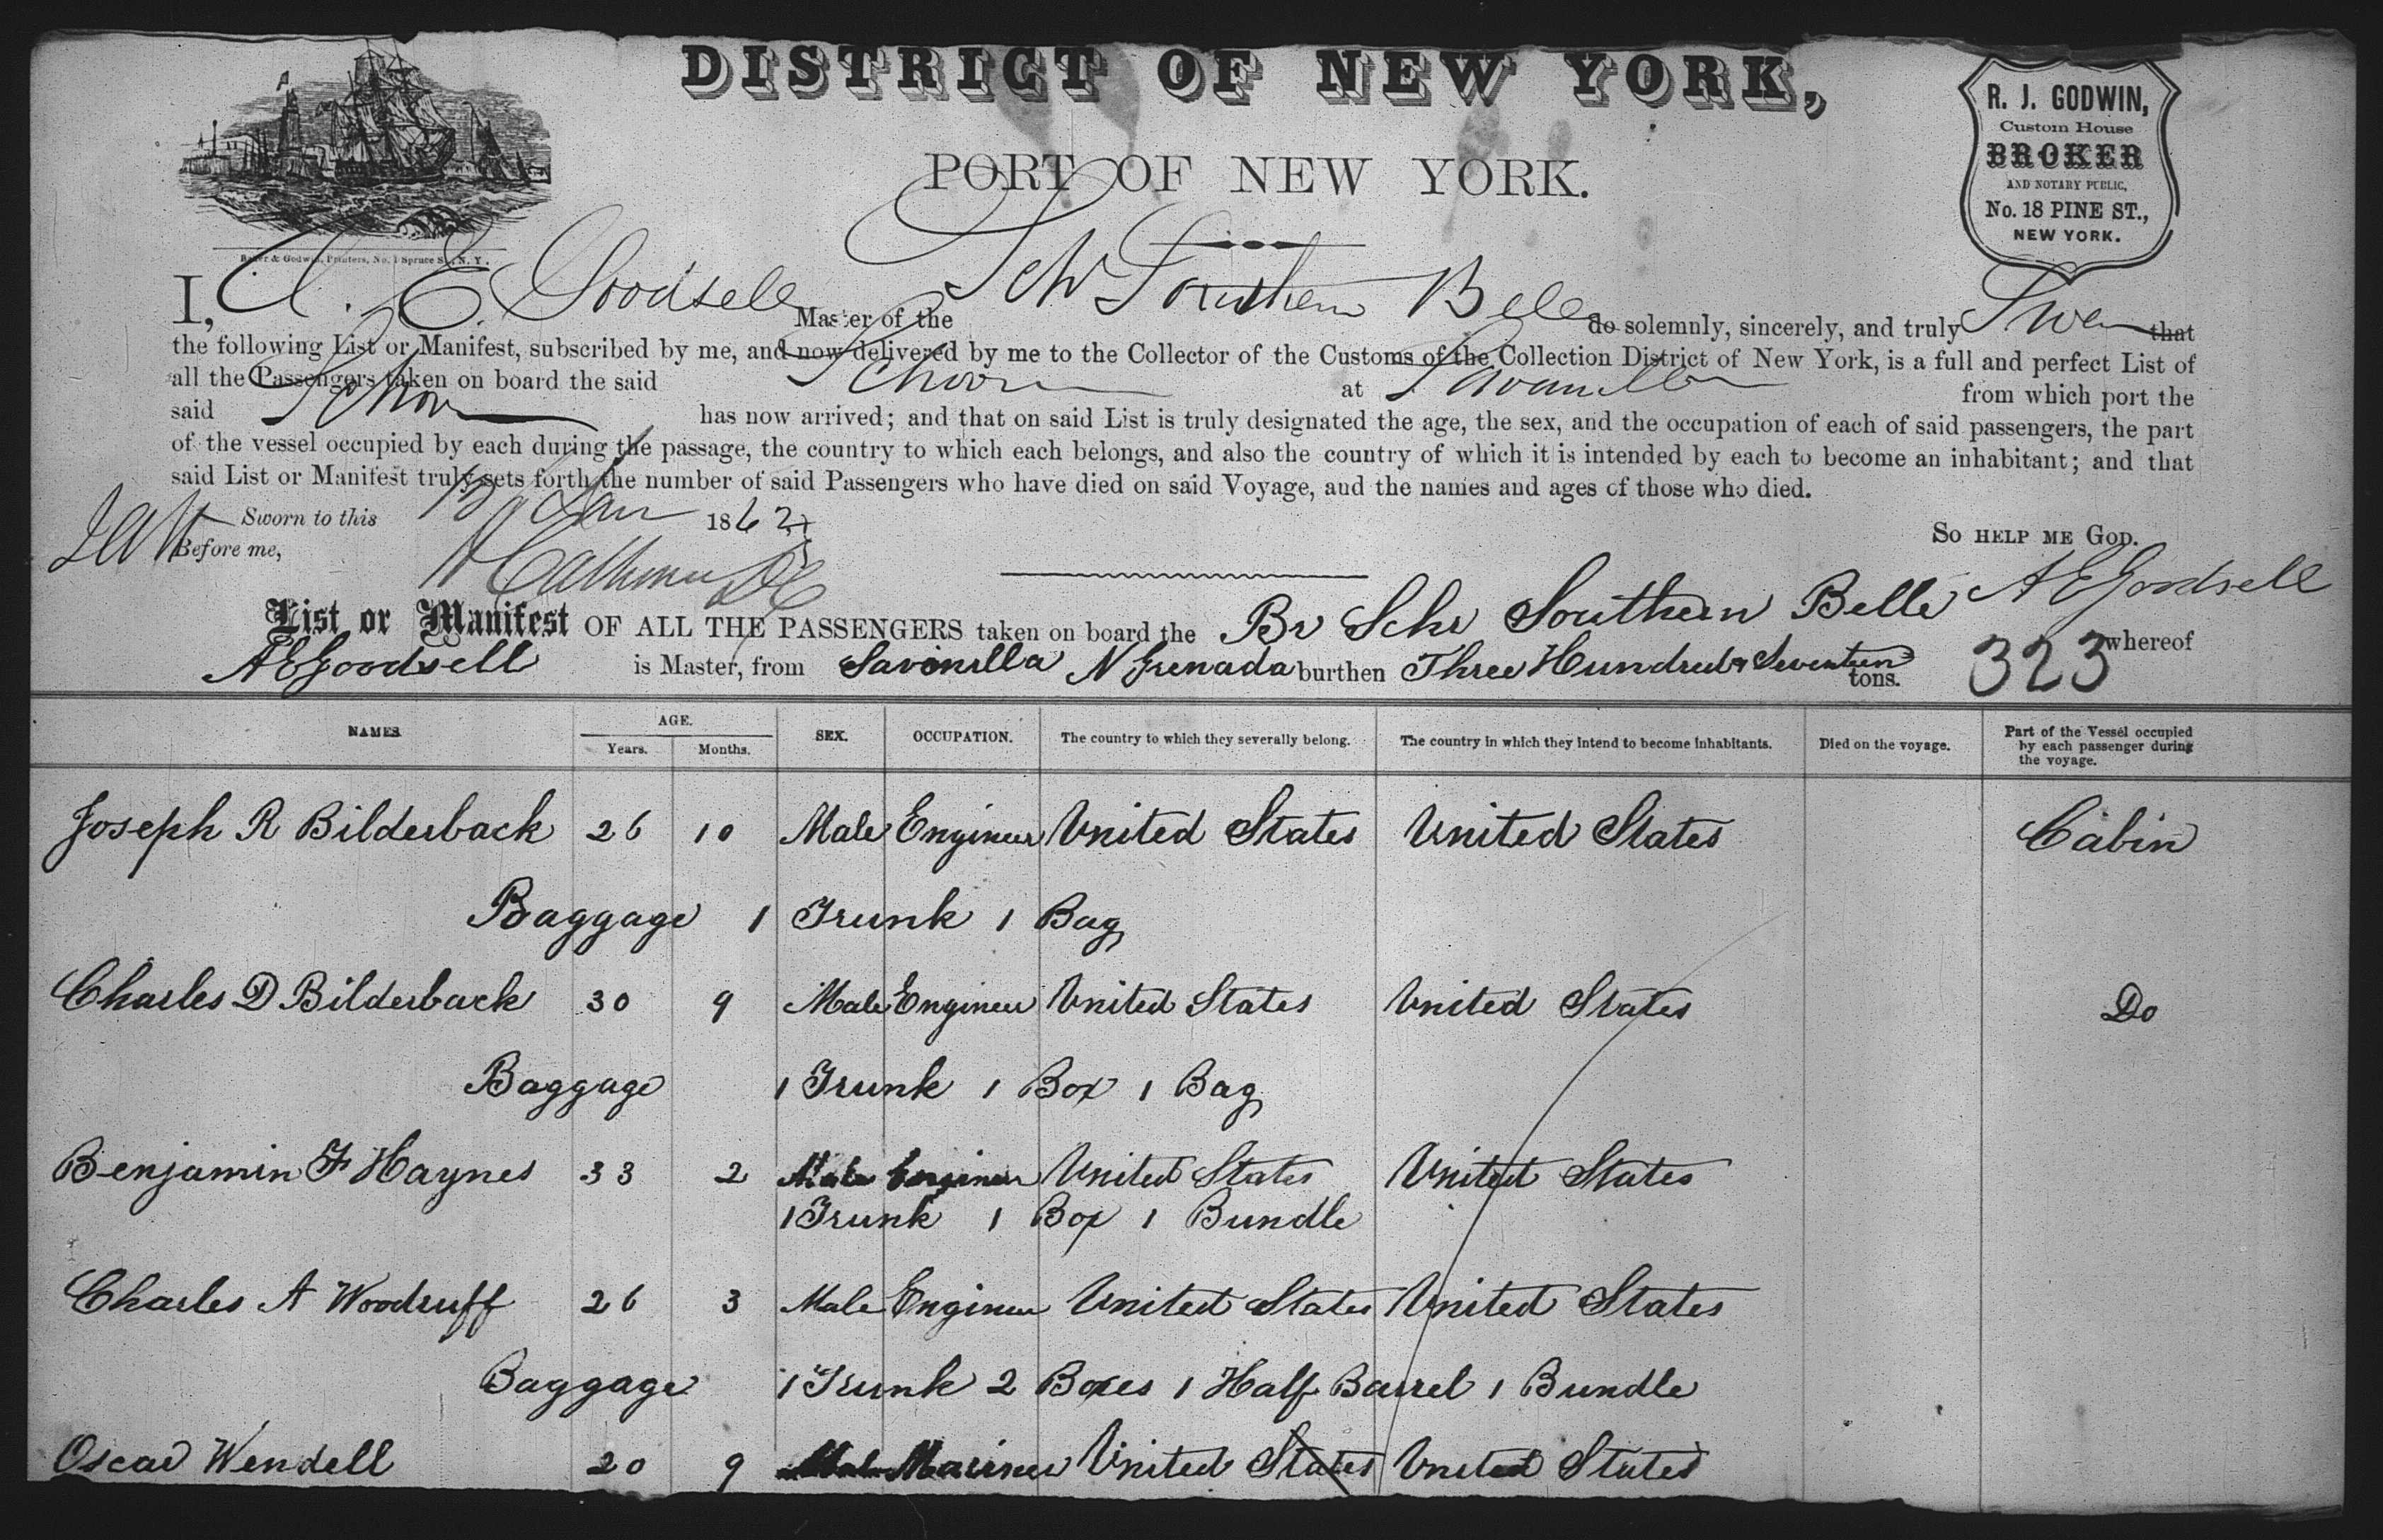 DISTRICT OF NEW YORK,
PORT OF NEW YORK.
R. J. GODWIN,
Custom House
BROKER
AND NOTARY PUBLIC,
No. 18 PINE ST.,
NEW YORK.
Baker & Godwin, Printers, No. 1 Spruce St., N. Y.
I, A. E. Goodsell Master of the Schr Southern Belle do solemnly, sincerely, and truly Swear that
the following List or Manifest, subscribed by me, and now delivered by me to the Collector of the Customs of the Collection District of New York, is a full and perfect List of
all the Passengers taken on board the said Schoor at Savanilla from which port the
said Schoor has now arrived; and that on said List is truly designated the age, the sex, and the occupation of each of said passengers, the part
of the vessel occupied by each during the passage, the country to which each belongs, and also the country of which it is intended by each to become an inhabitant; and that
said List or Manifest truly sets forth the number of said Passengers who have died on said Voyage, and the names and ages of those who died.
Sworn to this Jan 1862
So HELP ME GOD.
Before me,
A E Goodsell
List or Manifest OF ALL THE PASSENGERS taken on board the Br Schr Southern Belle whereof
A E Goodsell is Master, from Savonilla N Grenada burthen Three Hundred & Seventeen tons. 323
NAMES AGE. SEX. OCCUPATION. The country to which they severally belong. The country in which they intend to become inhabitants. Died on the voyage. Part of the Vessel occupied by each passenger during the voyage.
Years. Months.
Joseph R Bilderback 26 10 Male Engineer United States United States Cabin
Baggage 1 Trunk 1 Bag
Charles D Bilderback 30 9 Male Engineer United States United States Do
Baggage 1 Trunk 1 Box 1 Bag
Benjamin F Haynes 33 2 Male Engineer United States United States
1 Trunk 1 Box 1 Bundle
Charles A Woodruff 26 3 Male Engineer United States United States
Baggage 1 Trunk 2 Boxes 1 Half Barrel 1 Bundle
Oscar Wendell 20 9 Male Mariner United States United States